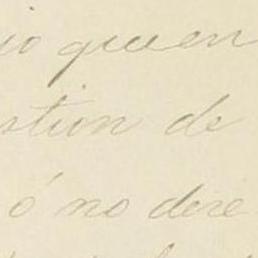 io queen
stion de
ó no dere